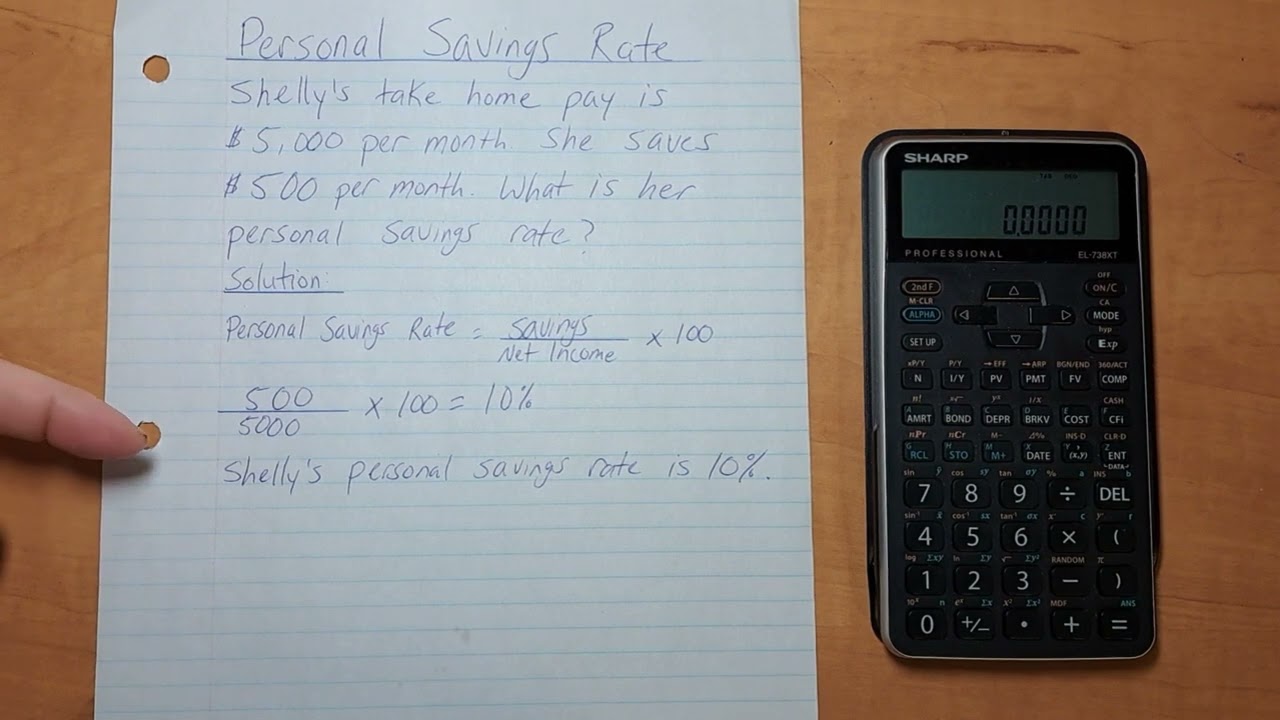 Personal Savings Rate
Shelly's take home pay is
$5,000 per month. She saves
$500 per month. What is her
personal savings rate?
Solution:
Personal Savings Rate = savings / Net Income × 100
500 / 5000 × 100 = 10%
Shelly's personal savings rate is 10%.
SHARP
0.0000
PROFESSIONAL EL-738XT
OFF
2nd F ON/C
M-CLR CA
ALPHA MODE
hyp
SET UP Exp
xP/Y P/Y →EFF →ARP BGN/END 360/ACT
N I/Y PV PMT FV COMP
n! yˣ 1/x CASH
AMRT BOND DEPR BRKV COST CFi
nPr nCr M- Δ% INS-D CLR-D
RCL STO M+ DATE (x,y) ENT
DATA
sin cos tan % INS
7 8 9 ÷ DEL
sin⁻¹ cos⁻¹ tan⁻¹
4 5 6 × (
log ln RANDOM π
1 2 3 − )
10ˣ eˣ x² MDF ANS
0 +/− • + =